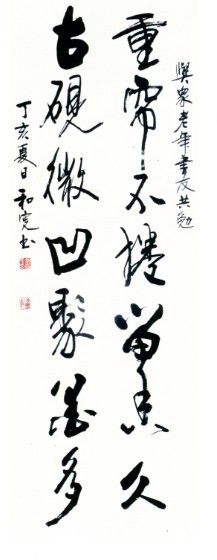 與眾老年書友共勉
重帘不捲留香久
古硯微凹聚墨多
丁亥夏日和寬書